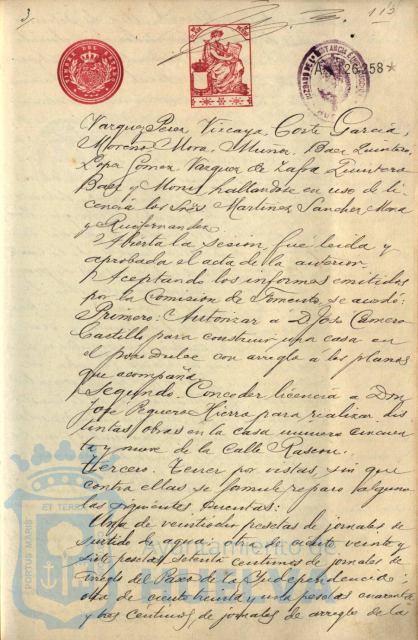 113
A 126,258*
Vazquez Perez Vizcaya, Corte Garcia,
Moreno Mora, Muñoz, Baez Quintero,
Lopez Gomez Vazquez de Zafra Quintero
Baez y Moriel hallandose en uso de li-
cencia los Sres Martinez, Sanchez Mora
y Ruifernandez
Abierta la sesion, fué leida y
aprobada el acta de la anterior.
Aceptando los informes emitidos
por la Comision de Fomento, se acordó:
Primero: Autorizar á D. José Camero
Castillo para construir una casa en
el pozo dulce con arreglo á los planos
que acompaña
Segundo. Conceder licencia á Don
José Peguero Hierro para realizar dis-
tintas obras en la casa numero cincuen-
ta y nueve de la Calle Rascon.
Tercero. Tener por vistas, sin que
contra ellas se formule reparo alguno
las siguientes cuentas:
Una de veintiocho pesetas de jornales de
surtido de agua, otra de ciento veinte y
siete pesetas setenta centimos de jornales de
arreglo del Paseo de la Independencia:
otra de ciento treinta y una pesetas cuarenta
y tres centimos, de jornales de arreglo de la
PORTUS MARIS
ET TERRÆ
Ayuntamiento de